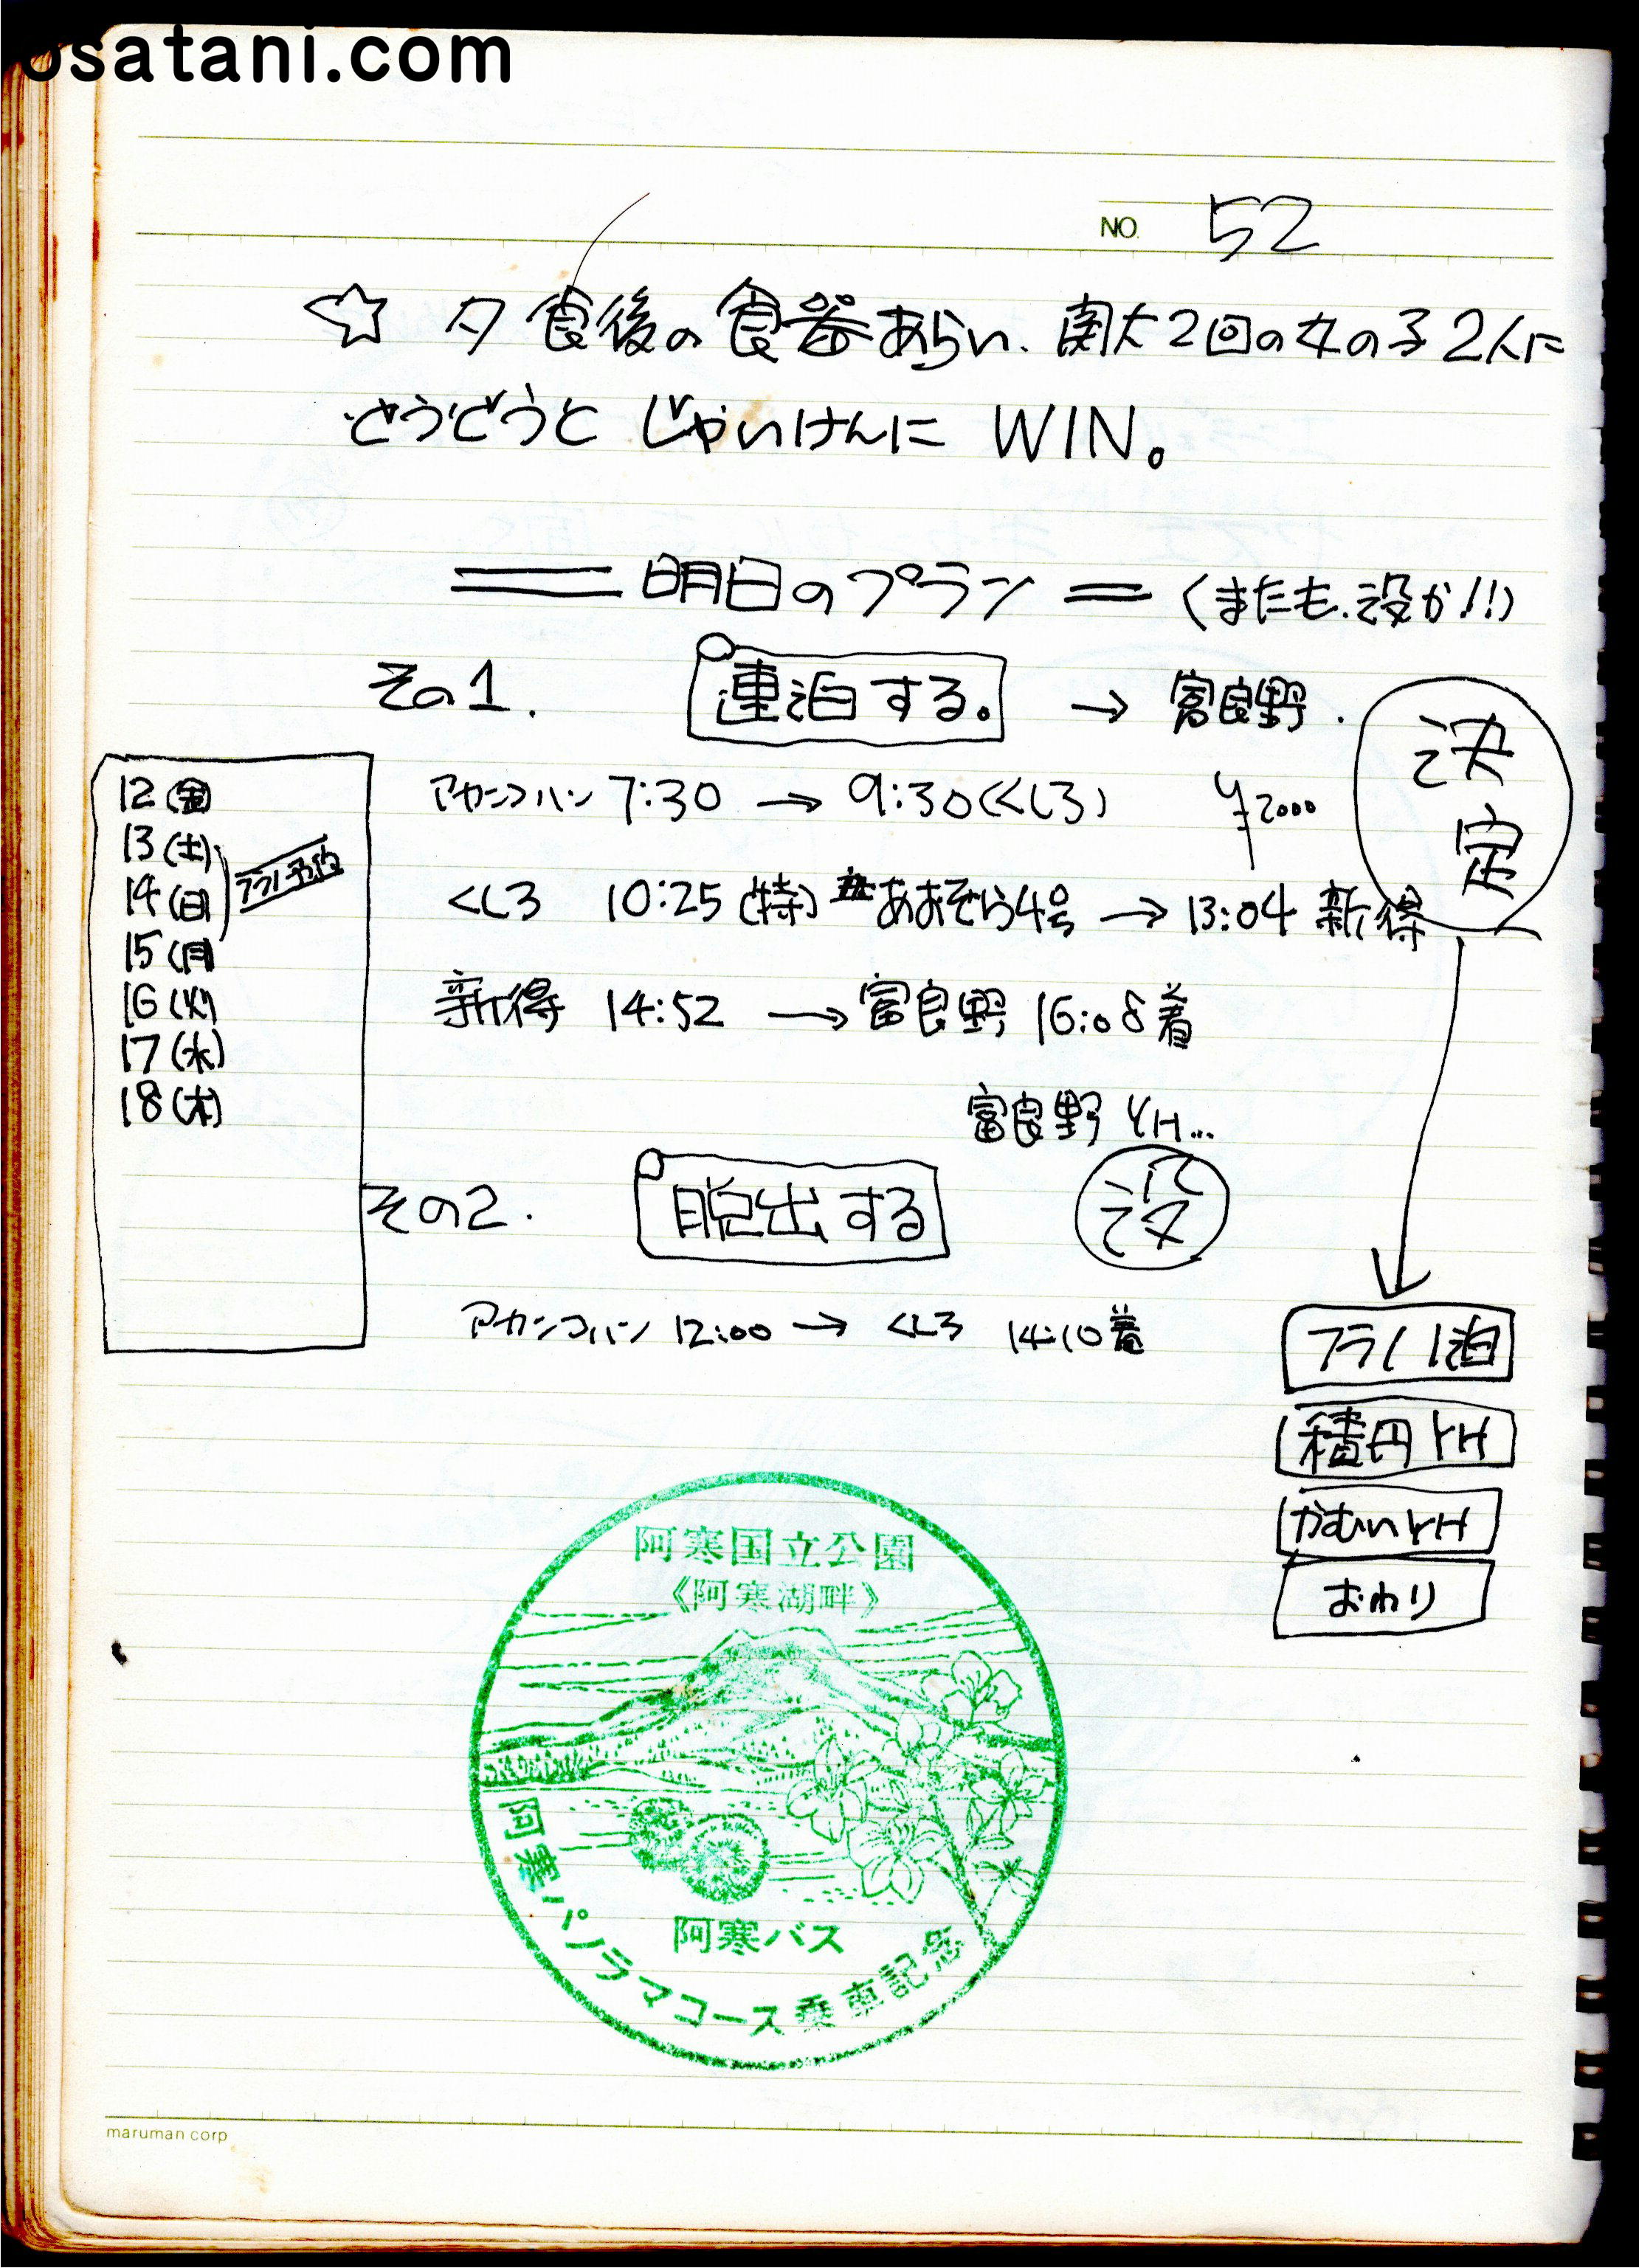 osatani.com
NO. 52
☆ 夕食後の食器あらい、関大2回の女の子2人に
どうどうと じゃいけんに WIN。
明日のプラン (またも、没か!!)
その1. 連泊する。 → 富良野.
決定
12(金)
13(土)
14(日)
フラノ予約
15(月)
16(火)
17(水)
18(木)
アカンコハン 7:30 → 9:30(くしろ) ¥2000
くしろ 10:25 (特) おおぞら4号 → 13:04 新得
新得 14:52 → 富良野 16:08着
富良野 YH...
その2. 脱出する 没
アカンコハン 12:00 → くしろ 14:10着
フラノ1泊
積丹YH
かむいYH
おわり
阿寒国立公園
《阿寒湖畔》
阿寒バス
阿寒パノラマコース乗車記念
maruman corp